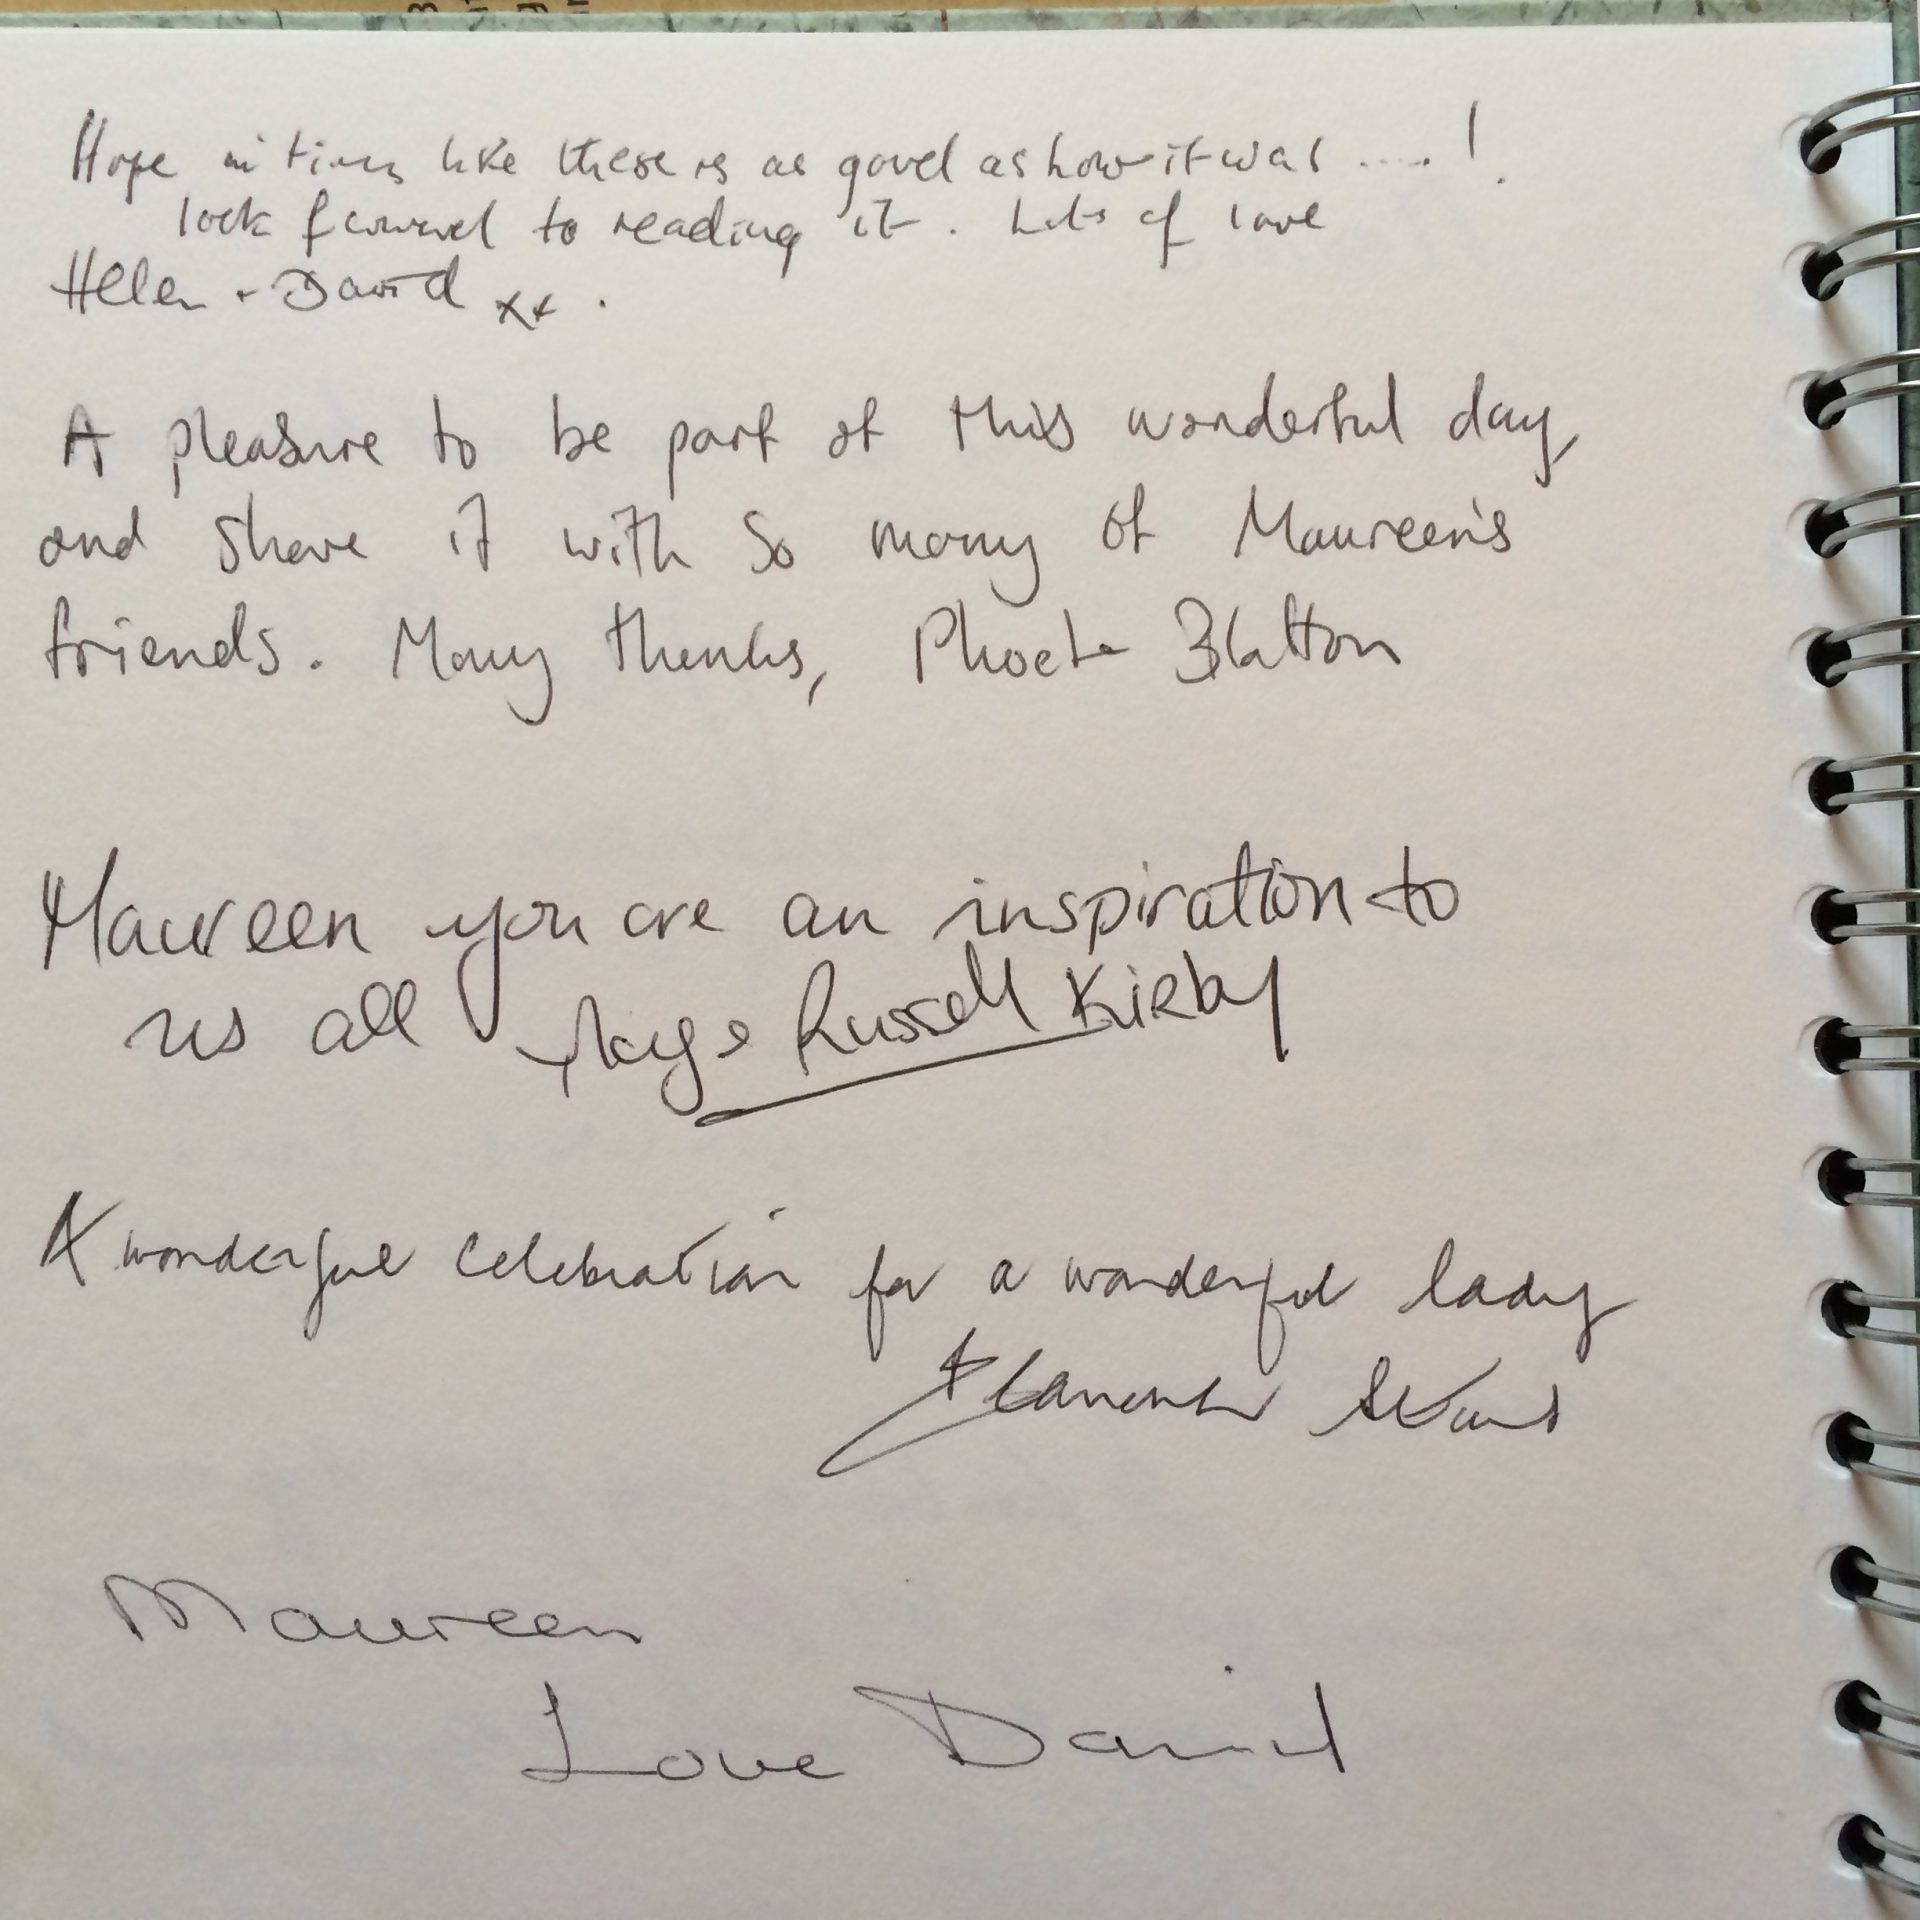 Hope in times like these is as good as how it was ..... !
look forward to reading it. Lots of love
Helen + David xx .
A pleasure to be part of this wonderful day,
and share it with so many of Maureen's
friends. Many thanks, Phoebe Blatton
Maureen you are an inspiration to
us all Russell Kirby
A wonderful celebration for a wonderful lady
Maureen
Love David